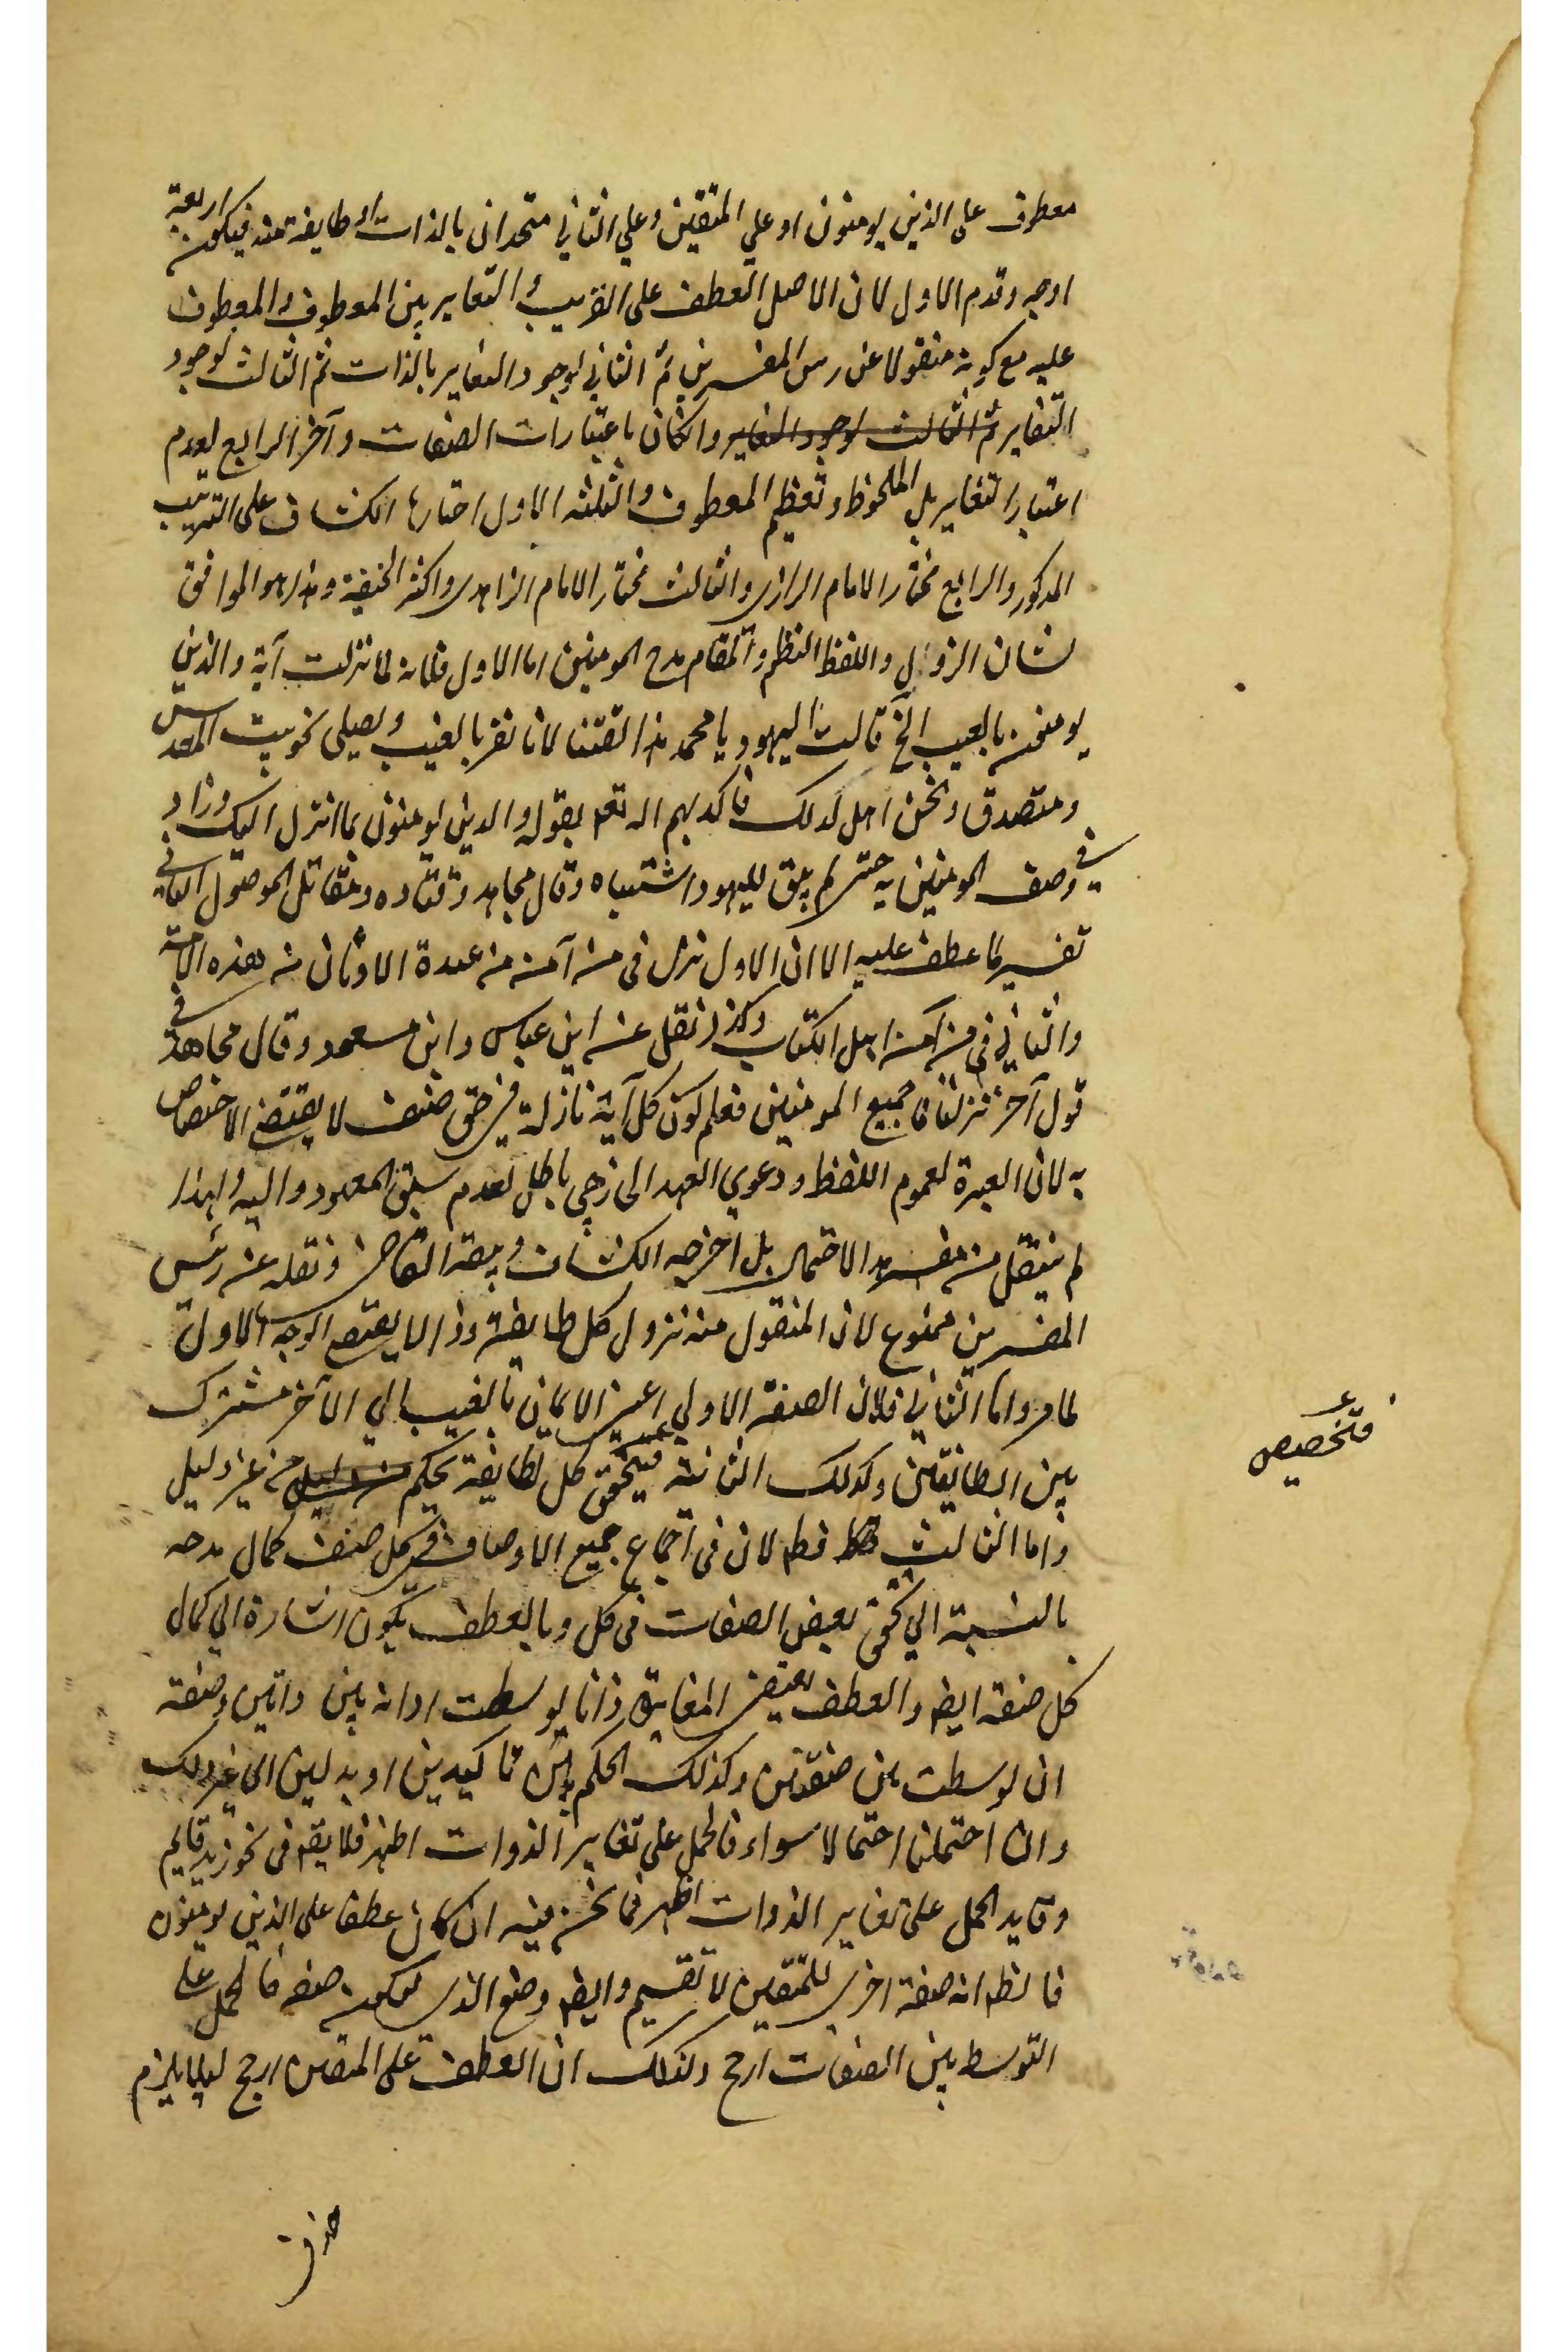 معطوف على الذين يومنون او علي المتقين وعلي الثاني متحدان بالذات او طايفة منه فيكون اربعة
اوجه وقدم الاول لان الاصل العطف على القريب والتغاير بين المعطوف والمعطوف
عليه مع كونه منقولا عن رس المفسرين ثم الثاني لوجود التغاير بالذات ثم الثالث لوجود
التغاير ثم الثالث لوجود التغاير وانكان باعتبارات الصفات وآخر الرابع لعدم
اعتبار التغاير بل الملحوظ وتعظيم المعطوف والثلثه الاول اختارها الكشاف على الترتيب
المدكور والرابع مختار الامام الرازى والثالث مختار الامام الزاهدى واكثر الحنفية وهذا هو الموافق
لشان النزول واللفظ النظم والمقام مدح المومنين اما الاول فلانه لما نزلت آية والذين
يومنون بالغيب الخ قالت اليهود يا محمد هذا لانا نقر بالغيب ويصلى نحو بيت المقدس
ومتصدق ونحن اهل لدلك فاكد بهم اله تعه بقوله والدين يومنون بما انزل اليك وزاد
في وصف المومنين به حتى لم يبق لليهود اشتباه وقال مجاهد وقتاده ومقاتل الموصول الثانى
تفسير لما عطف عليه الا ان الاول نزل فى من آمن من عبدة الاوثان من هذه الامة
والثاني فى من آمن اهل الكتاب وكذا نقل عن ابن عباس وابن مسعود وقال مجاهد فى
قول آخر نزلتا فا جميع المومنين فعلم كون كل آية نازلة فى حق صنف لا يقتضى الاختصاص
به لان العبرة لعموم اللفظ ودعوي العهد الخارجي باطل لعدم سبق المعهود واليه ولهذا
لم ينتقل من مفسر هذا الاحتمال بل اخرجه الكشاف وتبعه القاضى ونقله عن رئيس
المفسرين ممنوع لان المنقول منه نزول كل طايفة وذا لا يقتضى الوجه الاول
لما مر واما الثاني فلان الصفة الاولي اعنى الايمان بالغيب الي الآخر مشترك
بين الطايفتين وكدلك الثانية فيتحقق كل طايفة بحكم من دليل من غير دليل
واما الثالث فظ لان فى اجماع جميع الاوصاف فى كل صنف كمال مدحه
بالنسبة الي تحقق بعض الصفات فى كل وبالعطف يكون اشارة الي كمال
كل صفة ايض والعطف يقتضى المغايرة ذاتا لو وسطت اداته بين ذاتين وصفة
ان لوسطت بين صفتين وكذلك الحكم بين تاكيدين او بدلين الى غير دلك
وان احتملنا احتمالا سواء فالحمل على تغاير الذوات اظهر فلا يقع فى نحو زيد قايم
وقايد الحمل على تغاير الذوات اظهر فما نحن فيه ان كان عطفا على الذين يومنون
فالظ انه صفة اخرى للمتقين لا تقسيم وايض وضع الذى ليكون صفة فالحمل على
التوسط بين الصفات ارجح وكذلك ان العطف على المتقين ارجح ليلا يلزم
فتخصيص